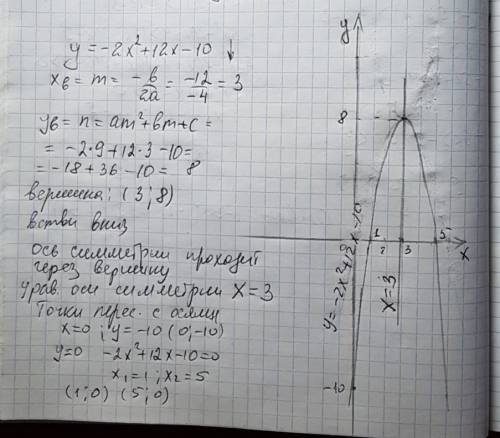 y = -2x²+12x-10 ↓
xв = m = -в/2a = -12/-4 = 3
yв = n = am²+вm+c =
= -2·9+12·3-10=
= -18+36-10= 8
вершина: (3;8)
ветви вниз
ось симметрии проходит
через вершину
урав. оси симметрии X=3
Точки перес. с осями
x=0 ; y=-10 (0;-10)
y=0 -2x²+12x-10=0
x₁=1 ; x₂=5
(1;0) (5;0)
y
8
1
2
3
5
x
-10
y=-2x²+12x-10
X=3